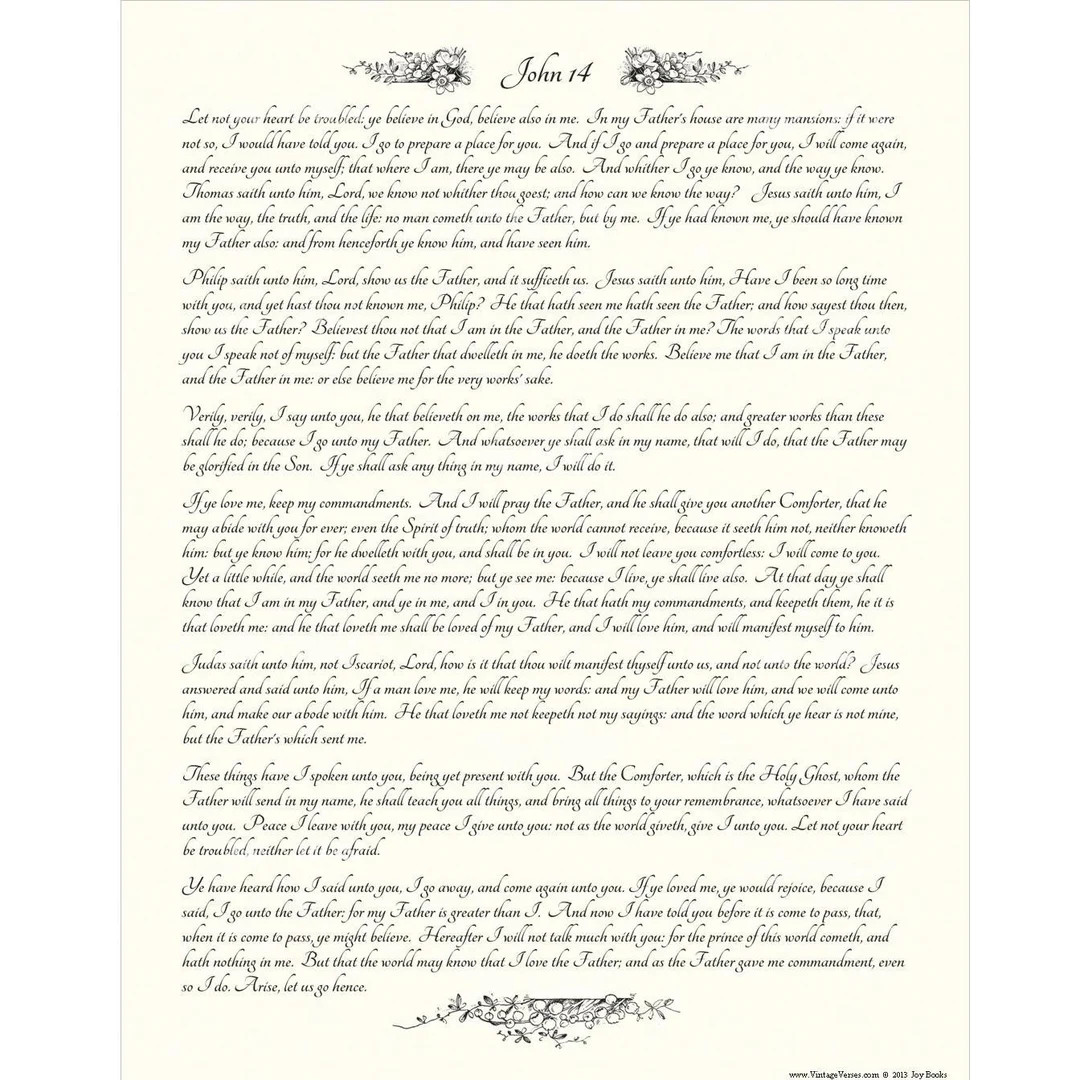 John 14
Let not your heart be troubled: ye believe in God, believe also in me. In my Father's house are many mansions: if it were
not so, I would have told you. I go to prepare a place for you. And if I go and prepare a place for you, I will come again,
and receive you unto myself; that where I am, there ye may be also. And whither I go ye know, and the way ye know.
Thomas saith unto him, Lord, we know not whither thou goest; and how can we know the way? Jesus saith unto him, I
am the way, the truth, and the life: no man cometh unto the Father, but by me. If ye had known me, ye should have known
my Father also: and from henceforth ye know him, and have seen him.
Philip saith unto him, Lord, show us the Father, and it sufficeth us. Jesus saith unto him, Have I been so long time
with you, and yet hast thou not known me, Philip? He that hath seen me hath seen the Father; and how sayest thou then,
show us the Father? Believest thou not that I am in the Father, and the Father in me? The words that I speak unto
you I speak not of myself: but the Father that dwelleth in me, he doeth the works. Believe me that I am in the Father,
and the Father in me: or else believe me for the very works' sake.
Verily, verily, I say unto you, he that believeth on me, the works that I do shall he do also; and greater works than these
shall he do; because I go unto my Father. And whatsoever ye shall ask in my name, that will I do, that the Father may
be glorified in the Son. If ye shall ask any thing in my name, I will do it.
If ye love me, keep my commandments. And I will pray the Father, and he shall give you another Comforter, that he
may abide with you for ever; even the Spirit of truth; whom the world cannot receive, because it seeth him not, neither knoweth
him: but ye know him; for he dwelleth with you, and shall be in you. I will not leave you comfortless: I will come to you.
Yet a little while, and the world seeth me no more; but ye see me: because I live, ye shall live also. At that day ye shall
know that I am in my Father, and ye in me, and I in you. He that hath my commandments, and keepeth them, he it is
that loveth me: and he that loveth me shall be loved of my Father, and I will love him, and will manifest myself to him.
Judas saith unto him, not Iscariot, Lord, how is it that thou wilt manifest thyself unto us, and not unto the world? Jesus
answered and said unto him, If a man love me, he will keep my words: and my Father will love him, and we will come unto
him, and make our abode with him. He that loveth me not keepeth not my sayings: and the word which ye hear is not mine,
but the Father's which sent me.
These things have I spoken unto you, being yet present with you. But the Comforter, which is the Holy Ghost, whom the
Father will send in my name, he shall teach you all things, and bring all things to your remembrance, whatsoever I have said
unto you. Peace I leave with you, my peace I give unto you: not as the world giveth, give I unto you. Let not your heart
be troubled, neither let it be afraid.
Ye have heard how I said unto you, I go away, and come again unto you. If ye loved me, ye would rejoice, because I
said, I go unto the Father: for my Father is greater than I. And now I have told you before it is come to pass, that,
when it is come to pass, ye might believe. Hereafter I will not talk much with you: for the prince of this world cometh, and
hath nothing in me. But that the world may know that I love the Father; and as the Father gave me commandment, even
so I do. Arise, let us go hence.
www.VintageVerses.com © 2013 Joy Books